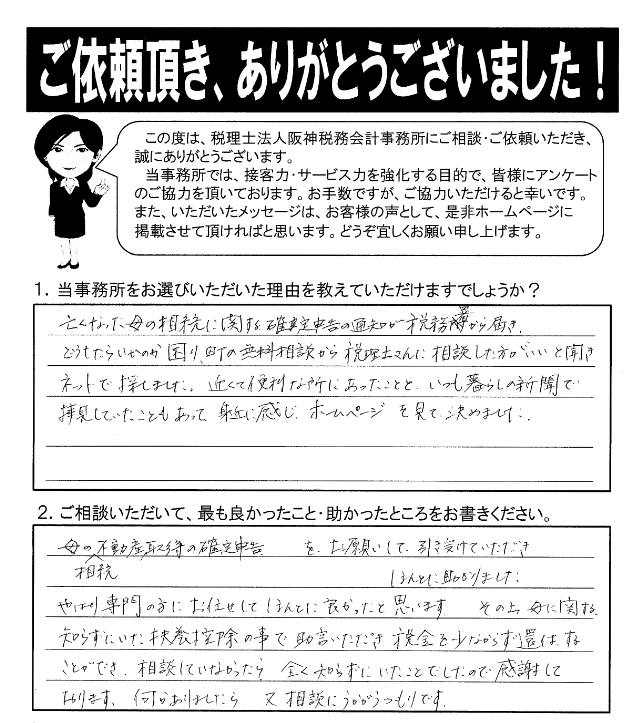 ご依頼頂き、ありがとうございました！
この度は、税理士法人阪神税務会計事務所にご相談・ご依頼いただき、
誠にありがとうございます。
当事務所では、接客力・サービス力を強化する目的で、皆様にアンケート
のご協力を頂いております。お手数ですが、ご協力いただけると幸いです。
また、いただいたメッセージは、お客様の声として、是非ホームページに
掲載させて頂ければと思います。どうぞ宜しくお願い申し上げます。
1. 当事務所をお選びいただいた理由を教えていただけますでしょうか？
亡くなった母の相続に関する確定申告の通知が税務署から届き、
どうしたらいいのか困り、町の無料相談から税理士さんに相談した方がいいと聞き
ネットで探しました。近くて便利な所にあったことと、いつも暮らしの新聞で
拝見していたこともあって身近に感じ、ホームページを見て、決めました。
2. ご相談いただいて、最も良かったこと・助かったところをお書きください。
母の不動産取得の確定申告 を、お願いして、引き受けていただき
相続 ほんとに助かりました
やはり専門の方にお任せしてほんとに良かったと思います その上、母に関する
知らずにいた扶養控除の事で助言いただき税金を少なからず還付する
ことができ、相談していなかったら全く知らずにいたことでしたので感謝して
おります、何かありましたら又相談にうかがうつもりです。